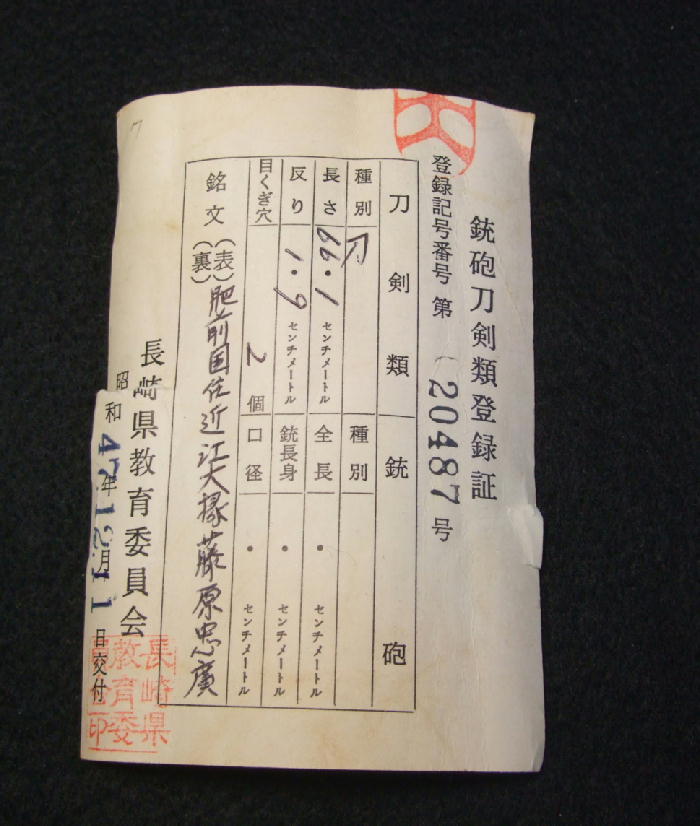 銃砲刀剣類登録証
登録記号番号 第 20487 号
刀剣類 銃砲
種別 刀 種別
長さ 66.1 センチメートル 全長 ・ センチメートル
反り 1.9 センチメートル 銃身長 ・ センチメートル
目くぎ穴 2 個 口径 ・ センチメートル
銘文 (表)(裏) 肥前国住近江大掾藤原忠廣
長崎県教育委員会
昭和47年12月11日交付
長崎県
教育委
員会印